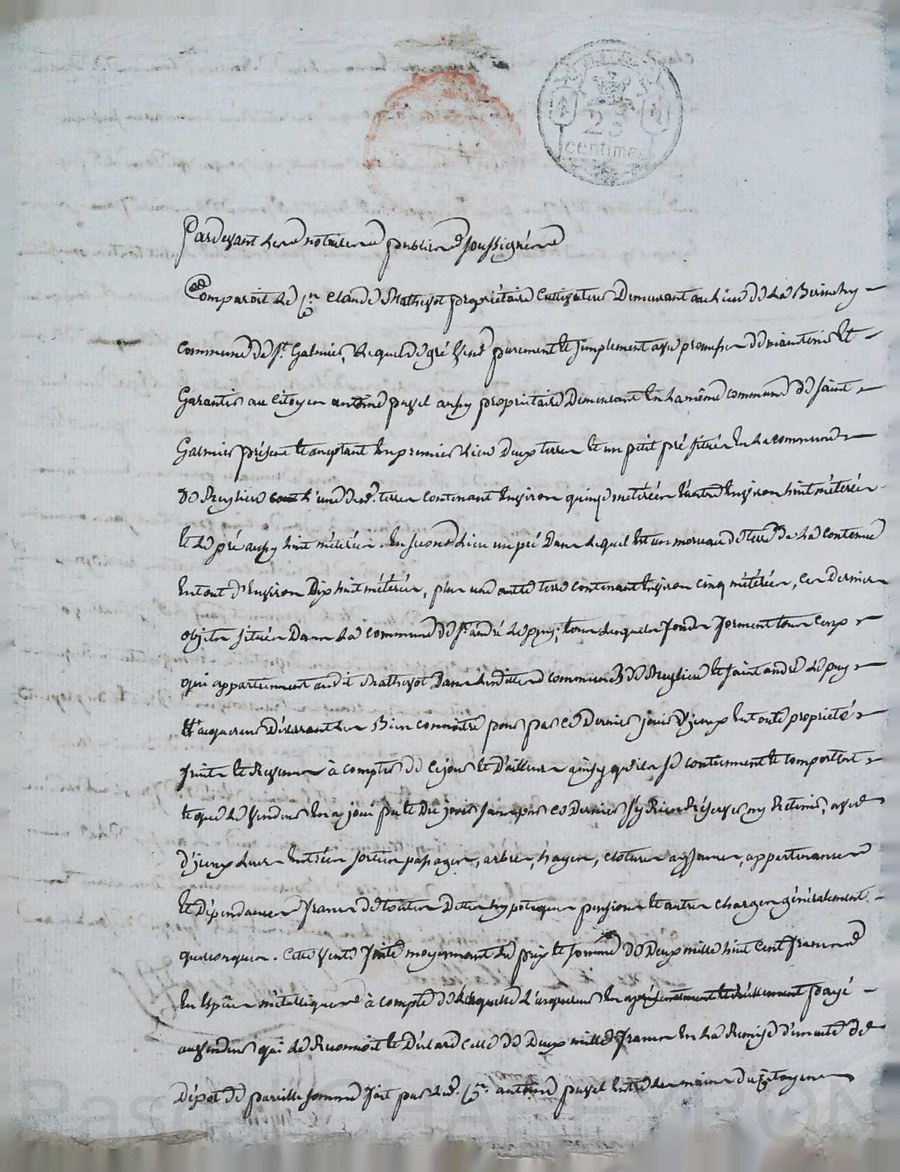 25
centimes
Pardevant Les notaires publics soussignés
Comparoit Le Cn Claude Mathevot propriétaire Cultivateur Demeurant au Lieu de La
commune de St Galmier, Lequel de gré vend purement et simplement avec promesse de maintenir et
Garantir au Citoyen antoine puyel aussy propriétaire Demeurant En La même commune de saint
Galmier présent et acceptant En premier Lieu Deux terres et un petit pré situés En La commune
de L'une desd. terres contenant Environ quinze méterées L'autre Environ huit méterées
et Le pré aussy huit méterées. En second Lieu un pré Dans Lequel Est un morceau de terre de La contenue
En tout d'Environ Dix huit méterées, plus une autre terre contenant Environ cinq méterées, ces Derniers
objets situés Dans La commune de St andré Le puy; tous Lesquels fonds forment tout corps
qui appartiennent audit Mathevot Dans Lesdites communes de et saint andré Le puy
Et L'acquereur Déclarant Les Bien connoitre pour par ce Dernier jouir d'jceux En toute propriété
fruits et Revenus à compter de ce jour et D'ailleurs ainsy qu'ils se contiennent et comportent
et que Le vendeur En a joui pu et Du jouir sans par ce Dernier s'y Rien Réserver ny Retenir, avec
d'jceux Leurs Entrées sorties passages, arbres, hayes, clotures aysances, appartenances
et Dépendances francs de toutes Dettes hypoteques pensions et autres charges généralement
quelconques. Cette vente faite moyennant Le prix et somme de Deux mille huit cent francs
En Espèces métalliques à compte de Laquelle L'acquereur En a payé
au vendeur qui Le Reconnoit et Déclare celle de Deux mille francs En La Remise d'un acte de
dépot de pareille somme fait par Led. Cn antoine puyel Entre Les mains du Citoyen